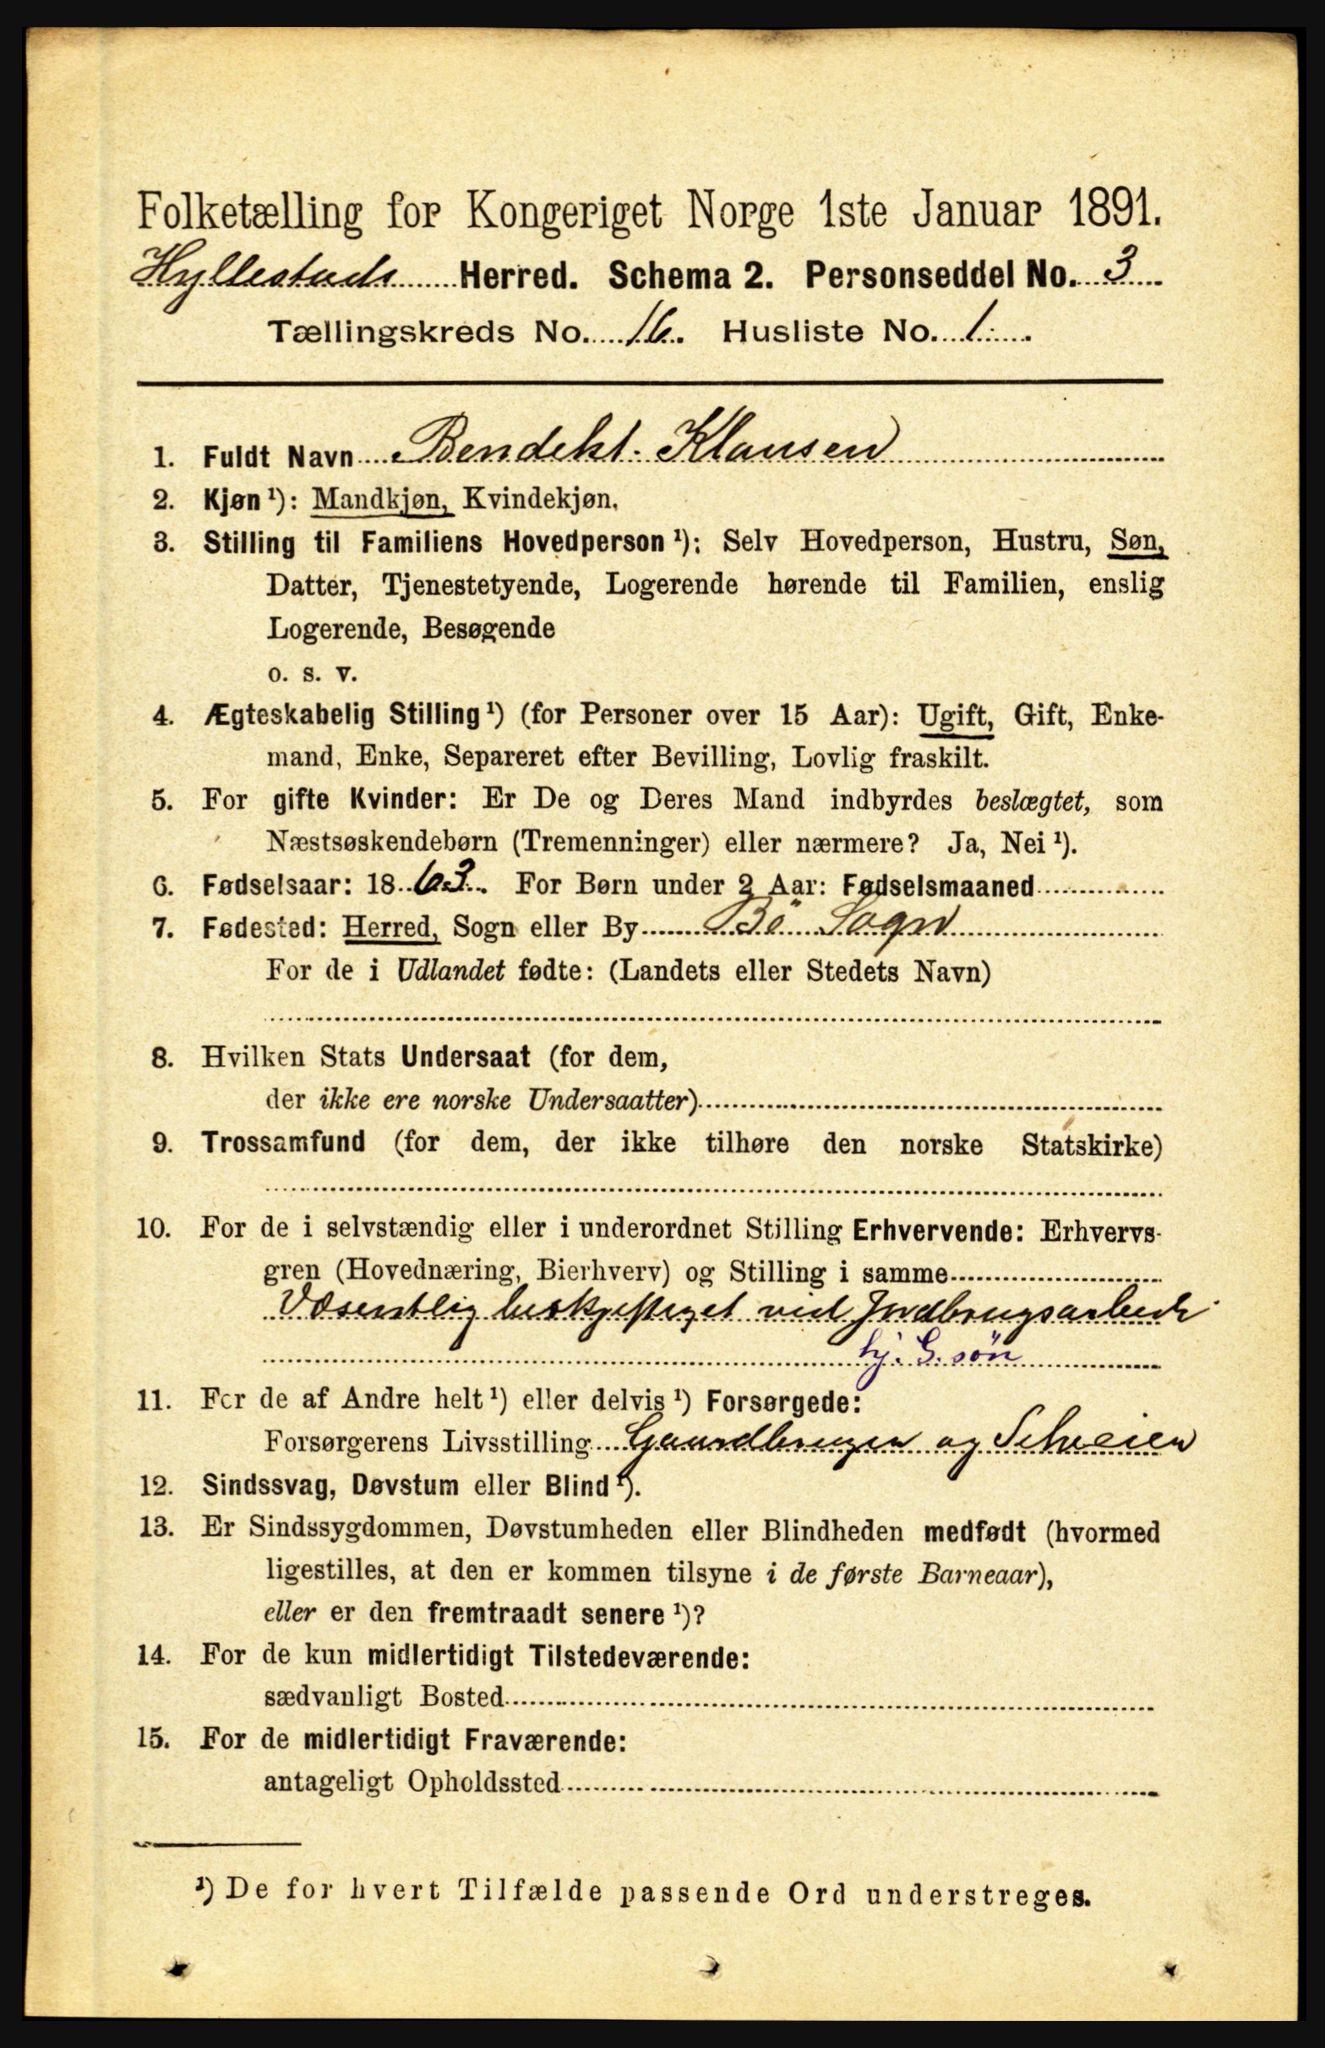 Folketælling for Kongeriget Norge 1ste Januar 1891.
Hyllestads Herred. Schema 2. Personseddel No. 3
Tællingskreds No. 16. Husliste No. 1.
1. Fuldt Navn Bendekt Klausen
2. Kjøn ¹): Mandkjøn, Kvindekjøn.
3. Stilling til Familiens Hovedperson ¹): Selv Hovedperson, Hustru, Søn,
Datter, Tjenestetyende, Logerende hørende til Familien, enslig
Logerende, Besøgende
o. s. v.
4. Ægteskabelig Stilling ¹) (for Personer over 15 Aar): Ugift, Gift, Enke-
mand, Enke, Separeret efter Bevilling, Lovlig fraskilt.
5. For gifte Kvinder: Er De og Deres Mand indbyrdes beslægtet, som
Næstsøskendebørn (Tremenninger) eller nærmere? Ja, Nei ¹).
6. Fødselsaar: 1863. For Børn under 2 Aar: Fødselsmaaned
7. Fødested: Herred, Sogn eller By Bö Sogn
For de i Udlandet fødte: (Landets eller Stedets Navn)
8. Hvilken Stats Undersaat (for dem,
der ikke ere norske Undersaatter)
9. Trossamfund (for dem, der ikke tilhøre den norske Statskirke)
10. For de i selvstændig eller i underordnet Stilling Erhvervende: Erhvervs-
gren (Hovednæring, Bierhverv) og Stilling i samme
Væsentlig beskjeftiget ved Jordbrugsarbeide
hj. G. søn
11. For de af Andre helt ¹) eller delvis ¹) Forsørgede:
Forsørgerens Livsstilling Gaardbruger og Selveier
12. Sindssvag, Døvstum eller Blind ¹).
13. Er Sindssygdommen, Døvstumheden eller Blindheden medfødt (hvormed
ligestilles, at den er kommen tilsyne i de første Barneaar),
eller er den fremtraadt senere ¹)?
14. For de kun midlertidigt Tilstedeværende:
sædvanligt Bosted
15. For de midlertidigt Fraværende:
antageligt Opholdssted
¹) De for hvert Tilfælde passende Ord understreges.